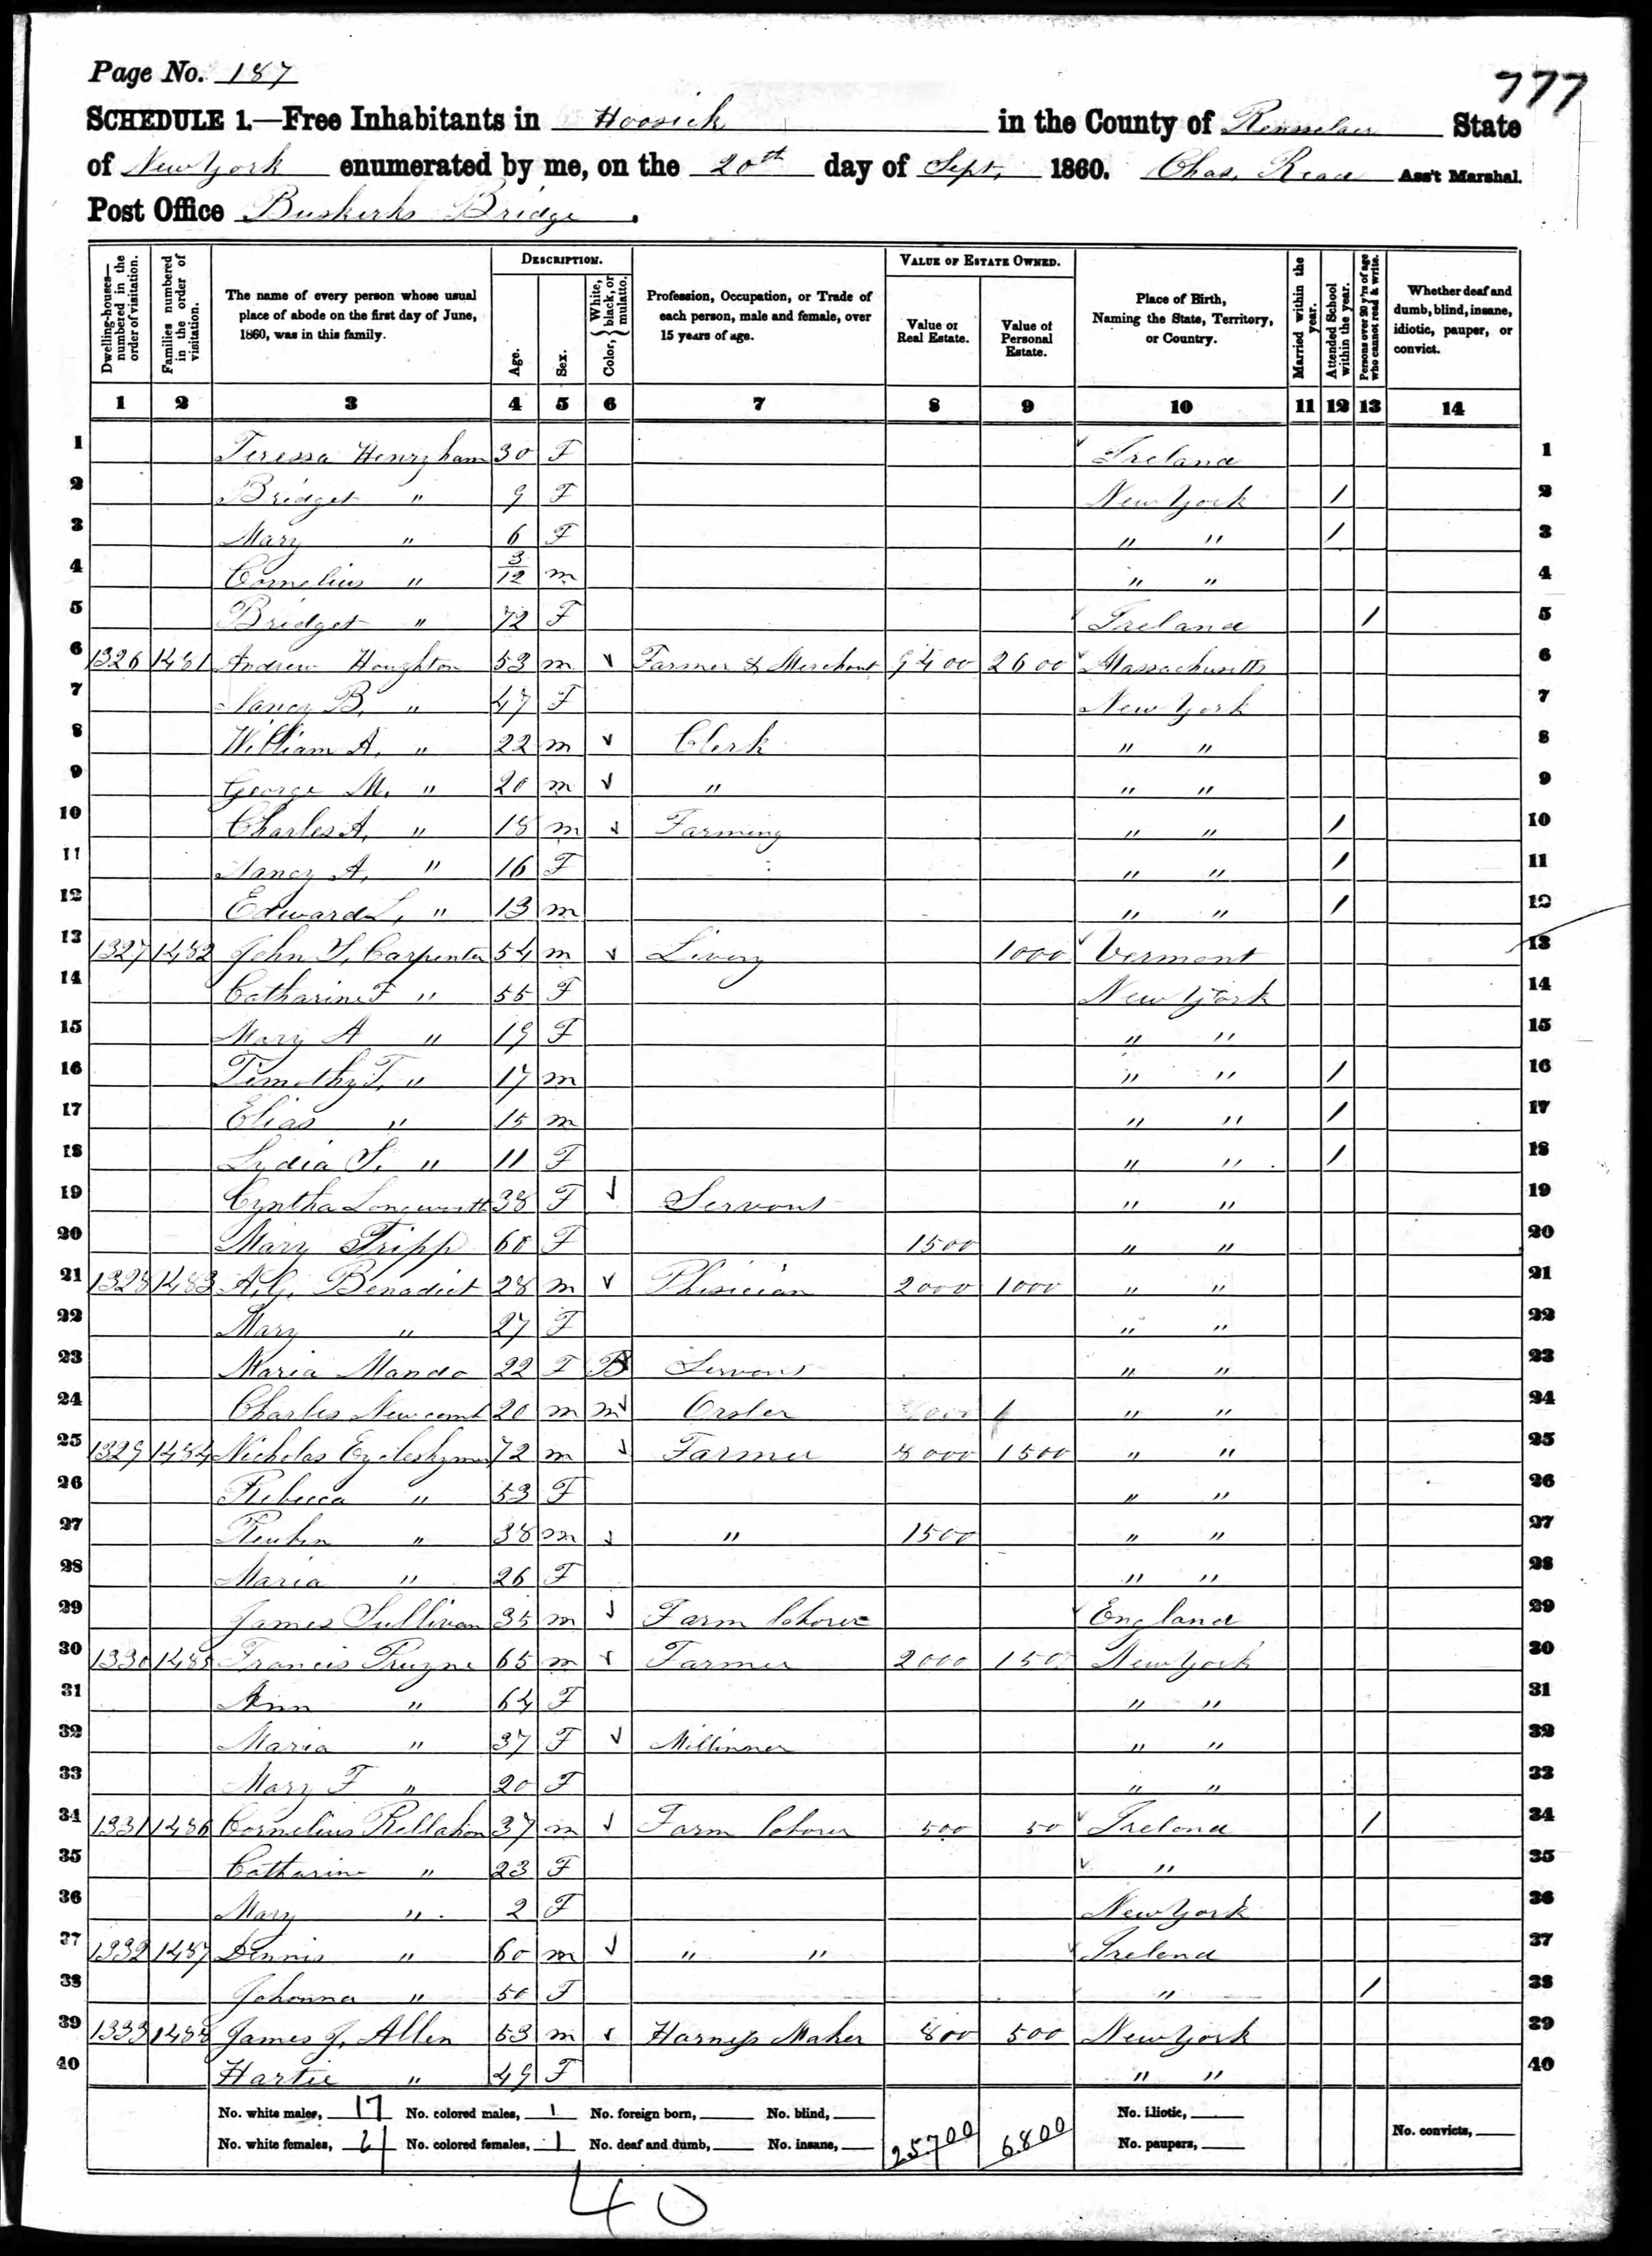 Page No. 187
777
SCHEDULE 1.—Free Inhabitants in Hoosick in the County of Rensselaer State
of New York enumerated by me, on the 20th day of Sept. 1860. Chas. Read Ass't Marshal.
Post Office Buskirks Bridge.
Dwelling-houses—numbered in the order of visitation. Families numbered in the order of visitation. The name of every person whose usual place of abode on the first day of June, 1860, was in this family. DESCRIPTION. Age. Sex. Color, White, black, or mulatto. Profession, Occupation, or Trade of each person, male and female, over 15 years of age. VALUE OF ESTATE OWNED. Value of Real Estate. Value of Personal Estate. Place of Birth, Naming the State, Territory, or Country. Married within the year. Attended School within the year. Persons over 20 y'rs of age who cannot read & write. Whether deaf and dumb, blind, insane, idiotic, pauper, or convict.
1 2 3 4 5 6 7 8 9 10 11 12 13 14
1 Teressa Henryham 30 F Ireland 1
2 Bridget " 9 F New York / 2
3 Mary " 6 F " " / 3
4 Cornelius " 3/12 m " " 4
5 Bridget " 72 F Ireland / 5
6 1326 1481 Andrew Houghton 53 m Farmer & Merchant 9400 2600 Massachusetts 6
7 Nancy B. " 47 F New York 7
8 William A. " 22 m Clerk " " 8
9 George M. " 20 m " " " 9
10 Charles A. " 18 m Farming " " / 10
11 Nancy A. " 16 F " " / 11
12 Edward L. " 13 m " " / 12
13 1327 1482 John S. Carpenter 54 m Livery 1000 Vermont 13
14 Catharine F " 55 F New York 14
15 Mary A " 19 F " " 15
16 Timothy T. " 17 m " " / 16
17 Elias " 15 m " " / 17
18 Lydia S. " 11 F " " / 18
19 Cyntha Longworth 38 F Servant " " 19
20 Mary Tripp 60 F 1500 " " 20
21 1328 1483 A.G. Benedict 28 m Phisician 2000 1000 " " 21
22 Mary " 27 F " " 22
23 Maria Mando 22 F B Servant " " 23
24 Charles Newcomb 20 m m Orsler " " 24
25 1329 1484 Nicholas Eycleshymer 72 m Farmer 8000 1500 " " 25
26 Rebecca " 53 F " " 26
27 Reuben " 38 m " 1500 " " 27
28 Maria " 26 F " " 28
29 James Sullivan 35 m Farm laborer England 29
30 1330 1485 Francis Pruyne 65 m Farmer 2000 150 New York 30
31 Ann " 64 F " " 31
32 Maria " 37 F Millinner " " 32
33 Mary F " 20 F " " 33
34 1331 1486 Cornelius Kellahon 37 m Farm laborer 500 50 Ireland / 34
35 Catharine " 23 F " 35
36 Mary " 2 F New York 36
37 1332 1487 Dennis " 60 m " " Ireland 37
38 Johanna " 50 F " / 38
39 1333 1488 James J. Allen 53 m Harness Maker 800 500 New York 39
40 Hartie " 49 F " " 40
No. white males, 17 No. colored males, 1 No. foreign born, No. blind, 25700 6800 No. idiotic,
No. white females, 21 No. colored females, 1 No. deaf and dumb, No. insane, No. paupers, No. convicts,
40